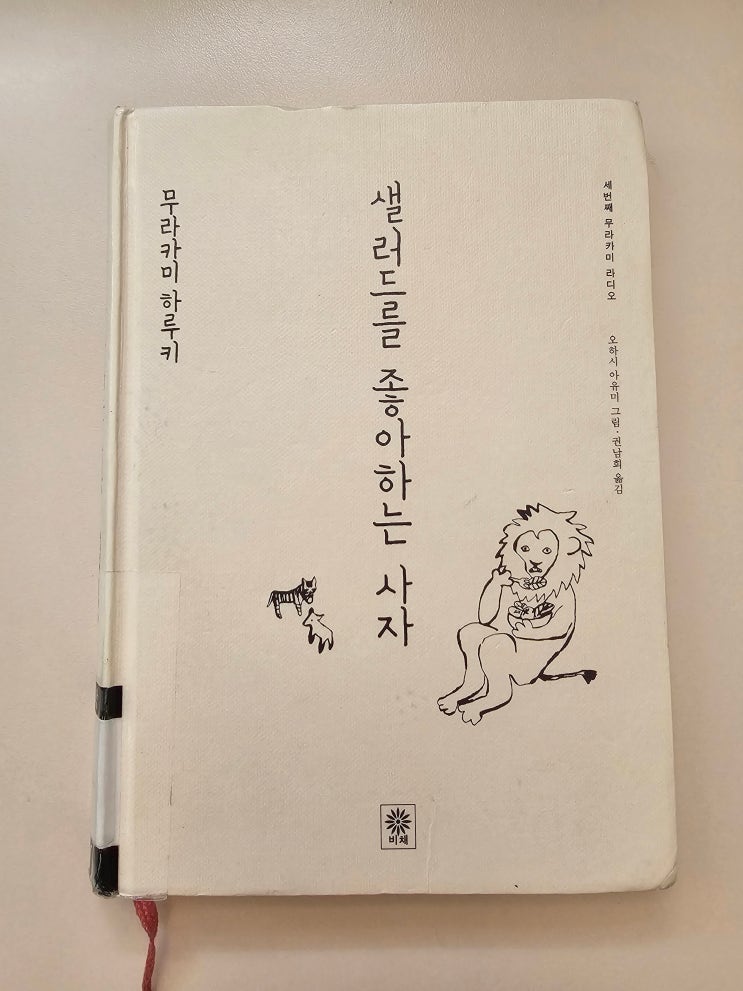 세번째 무라카미 라디오
오하시 아유미 그림·권남희 옮김
샐러드를 좋아하는 사자
무라카미 하루키
비채